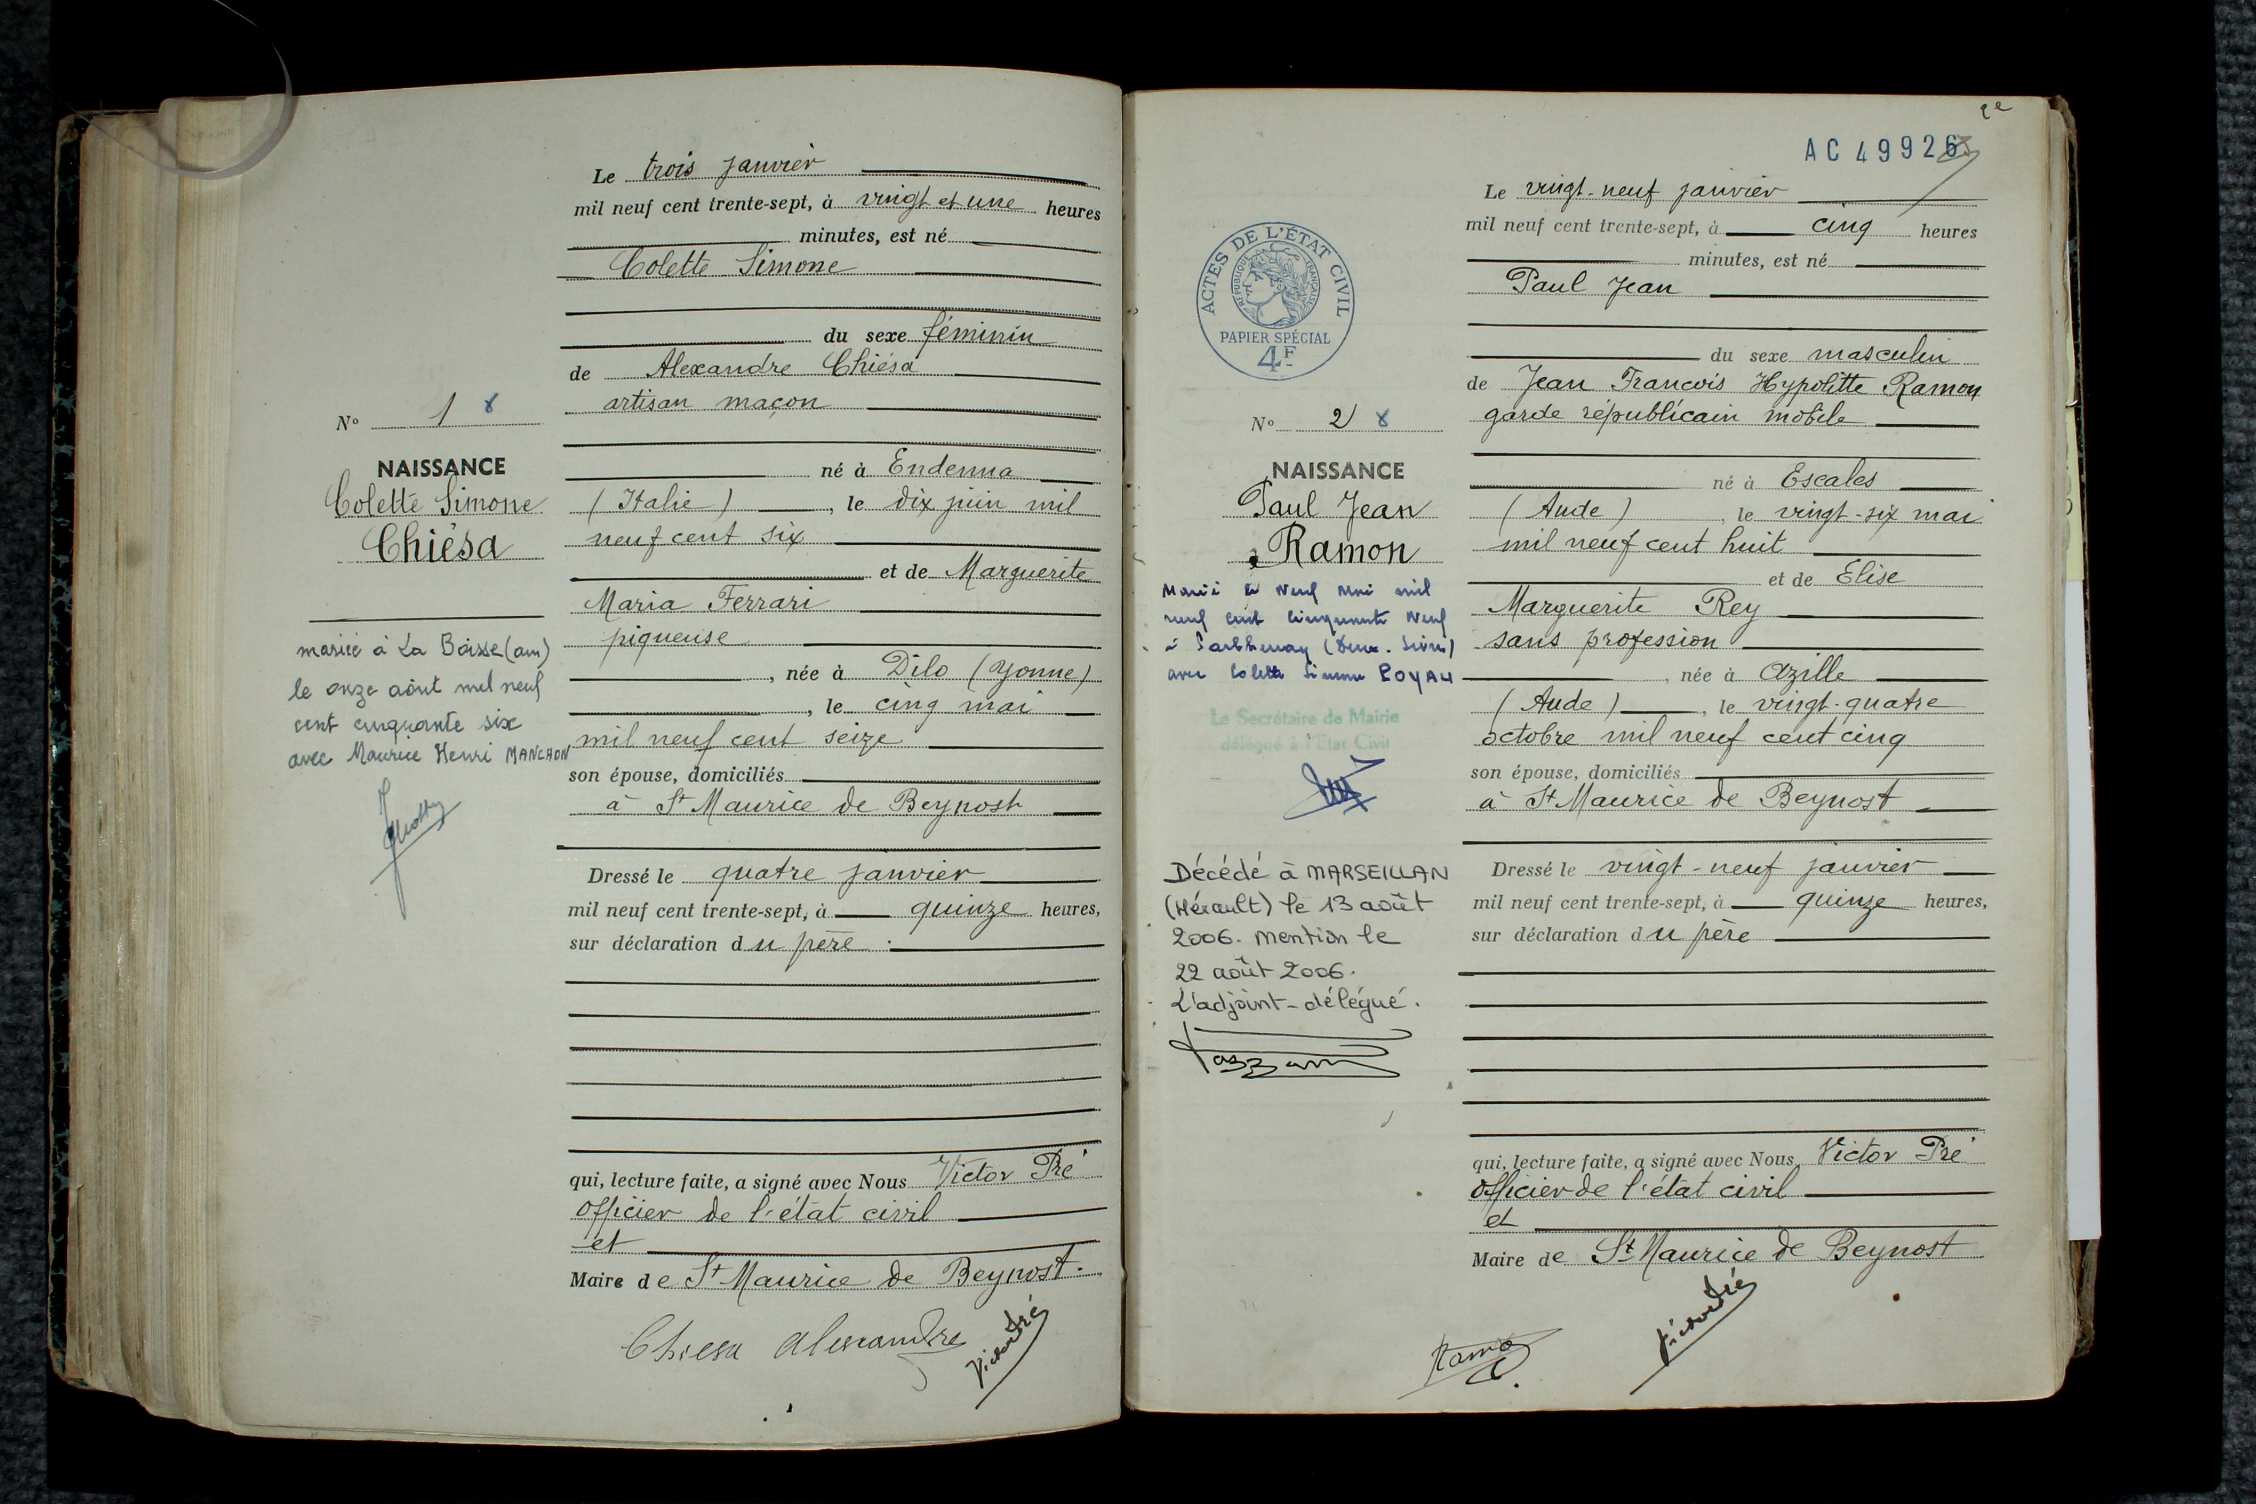 Le trois janvier
mil neuf cent trente-sept, à vingt et une heures
minutes, est né
Colette Simone
du sexe féminin
de Alexandre Chiésa
artisan maçon
né à Endenna
(Italie), le dix juin mil
neuf cent six
et de Marguerite
Maria Ferrari
piqueuse
, née à Dilo (Yonne)
, le cinq mai
mil neuf cent seize
son épouse, domiciliés
à St Maurice de Beynost
Dressé le quatre janvier
mil neuf cent trente-sept, à quinze heures,
sur déclaration du père
qui, lecture faite, a signé avec Nous Victor Pré
officier de l'état civil
et
Maire de St Maurice de Beynost.
Chiesa Alexandre
Victor Pré
No 1
NAISSANCE
Colette Simone
Chiésa
mariée à La Boisse (ain)
le onze août mil neuf
cent cinquante six
avec Maurice Henri MANCHON
2e
AC 49926
Le vingt-neuf janvier
mil neuf cent trente-sept, à cinq heures
minutes, est né
Paul Jean
du sexe masculin
de Jean Francois Hypolitte Ramon
garde républicain mobile
né à Escales
(Aude), le vingt-six mai
mil neuf cent huit
et de Elise
Marguerite Rey
sans profession
, née à Azille
(Aude), le vingt-quatre
octobre mil neuf cent cinq
son épouse, domiciliés
à St Maurice de Beynost
Dressé le vingt-neuf janvier
mil neuf cent trente-sept, à quinze heures,
sur déclaration du père
qui, lecture faite, a signé avec Nous Victor Pré
officier de l'état civil
et
Maire de St Maurice de Beynost
Victor Pré
ACTES DE L'ÉTAT CIVIL
RÉPUBLIQUE FRANÇAISE
PAPIER SPÉCIAL
4F
No 2
NAISSANCE
Paul Jean
Ramon
Marié le Neuf Mai mil
neuf cent cinquante Neuf
à Parthenay (Deux-Sèvres)
avec Colette Simone
Le Secrétaire de Mairie
délégué à l'Etat Civil
Décédé à MARSEILLAN
(Hérault) le 13 août
2006. mention le
22 août 2006.
L'adjoint-délégué.